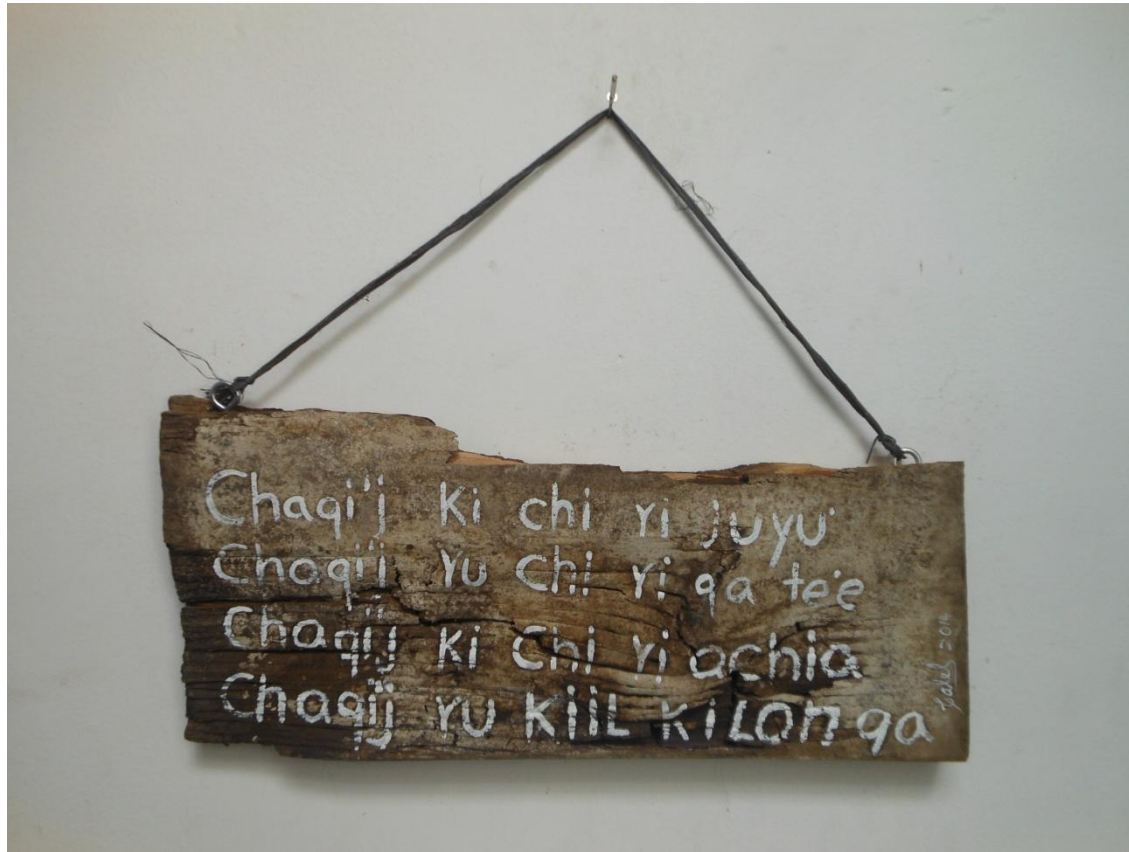 Chaqi'j Ki chi ri juyu'
Chaqi'j ru chi ri qa te'e
Chaqi'j Ki Chi ri achia
Chaqi'j ru KiiL KiLon qa
2014